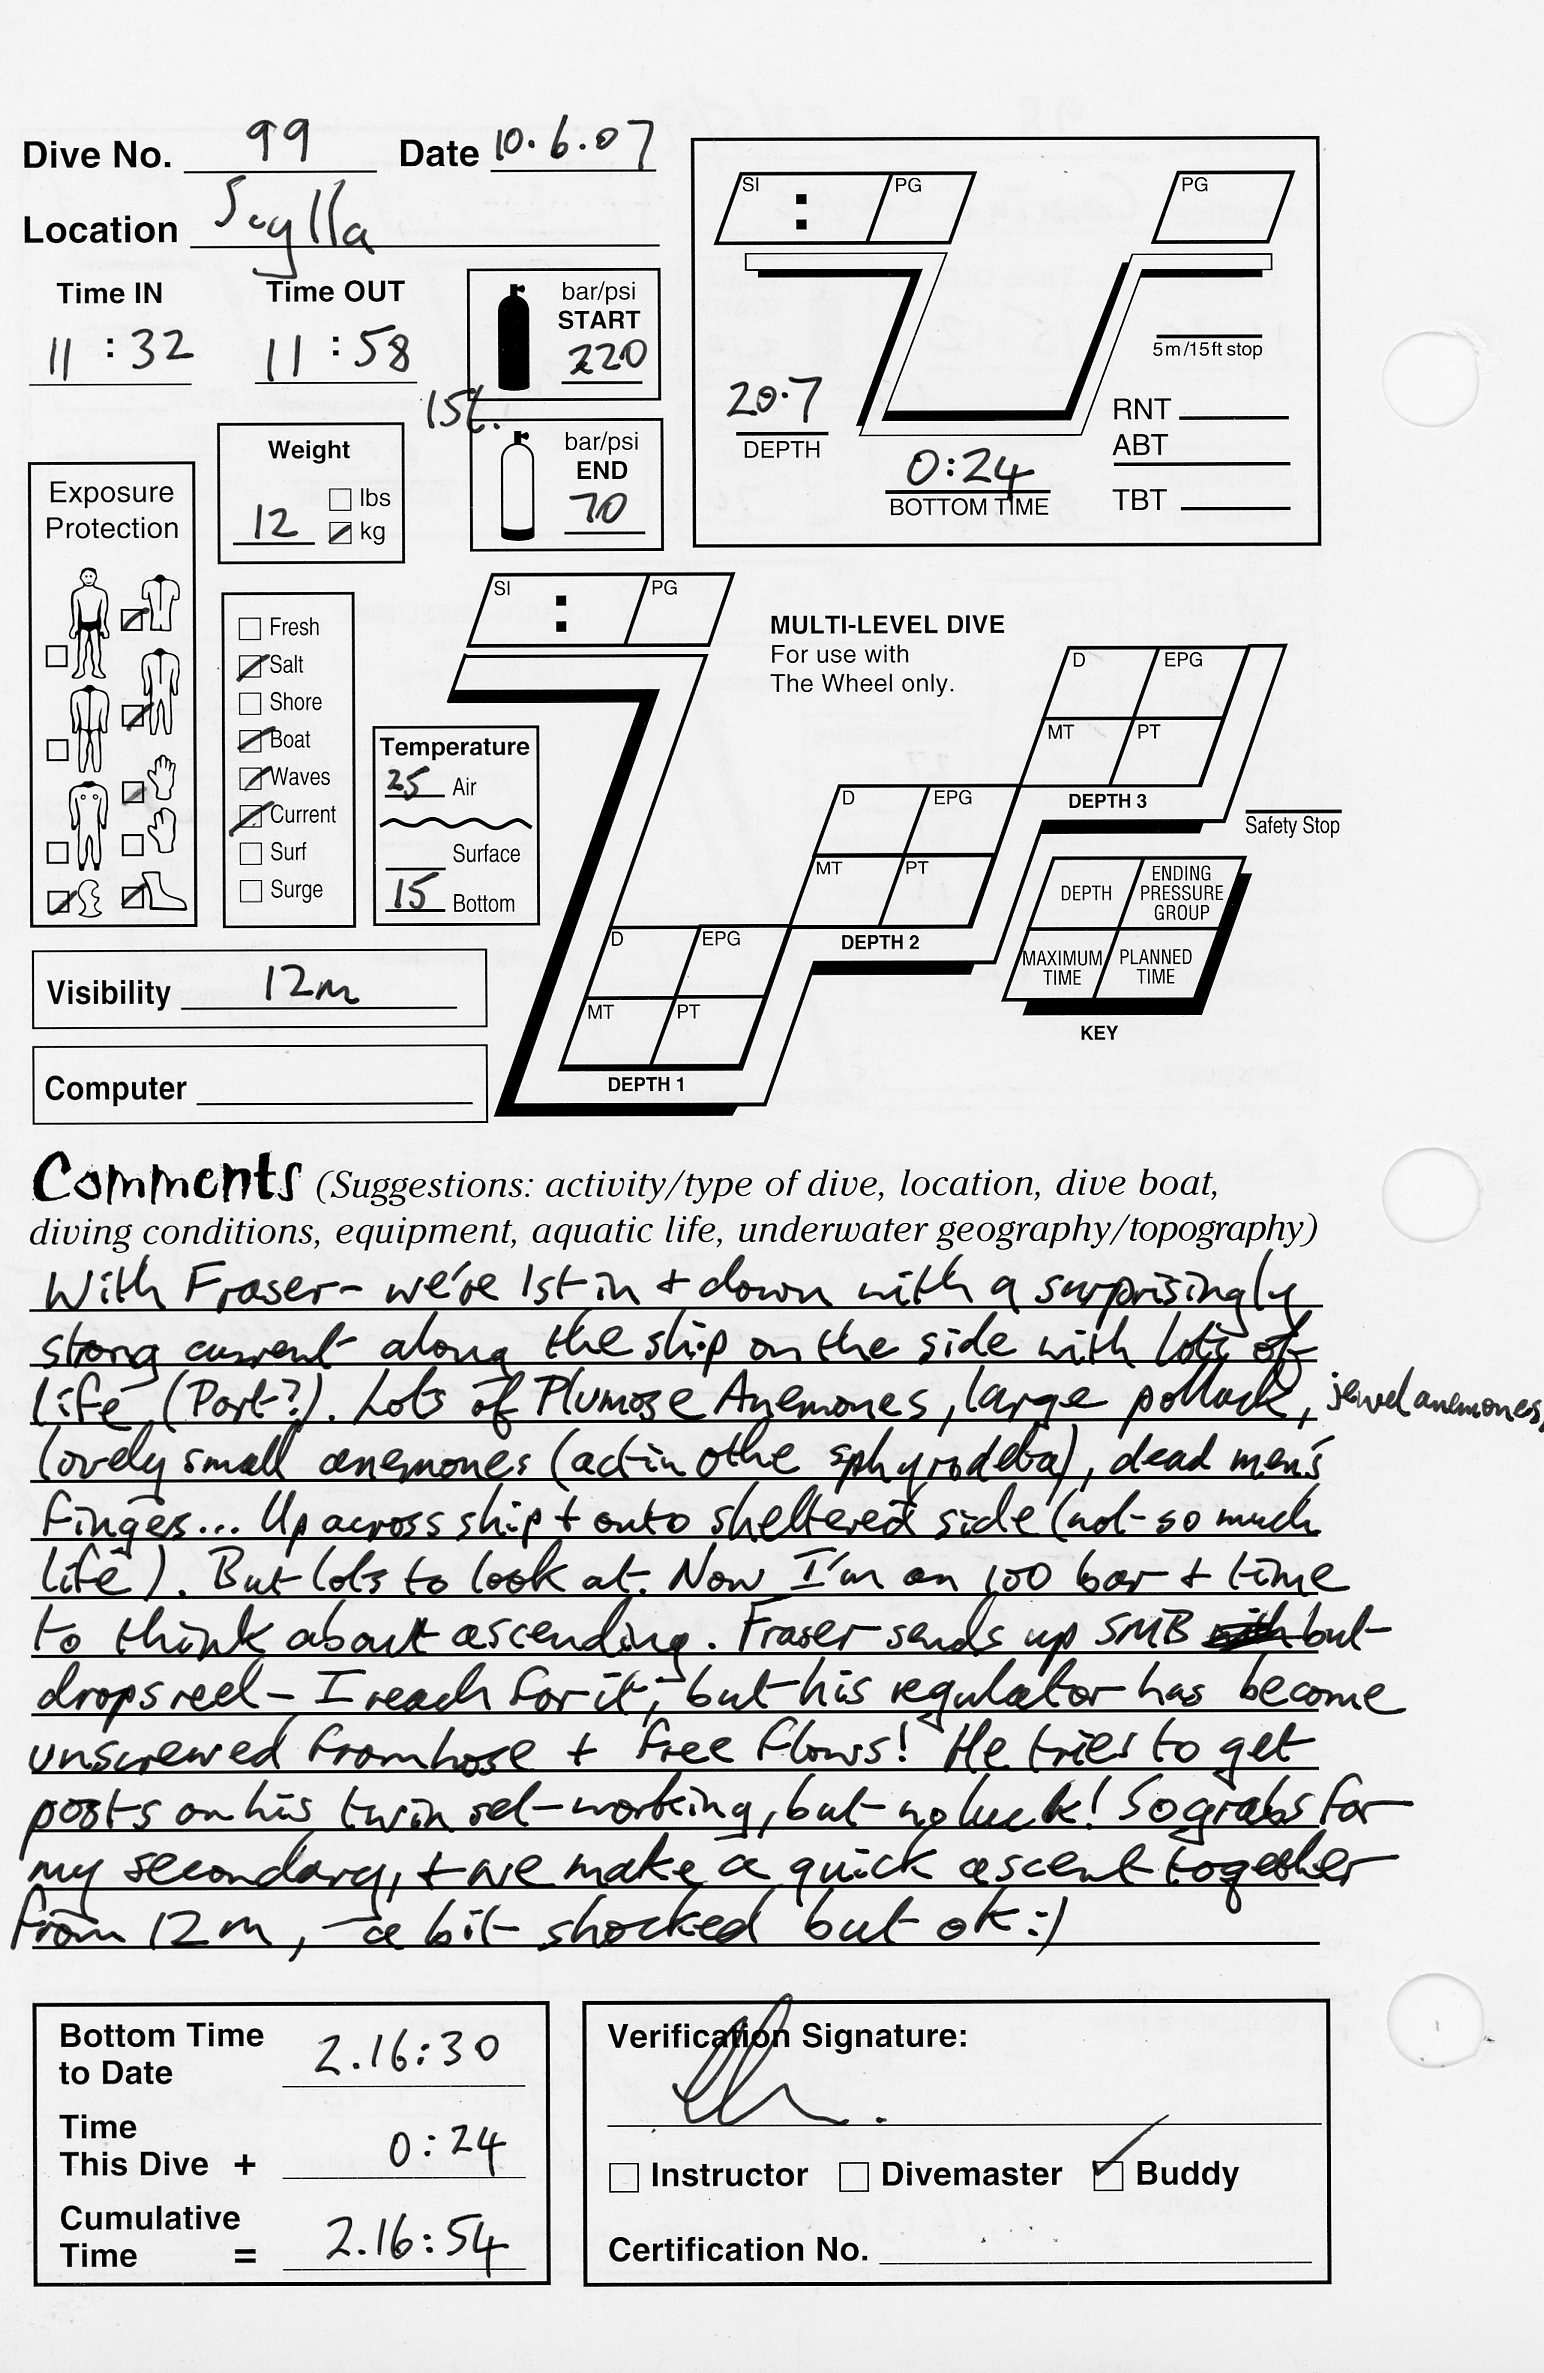 Dive No. 99 Date 10.6.07
Location Scylla
Time IN Time OUT
11 : 32 11 : 58
bar/psi
START
220
15l.
bar/psi
END
70
Weight
lbs
12 kg
Exposure
Protection
Fresh
Salt
Shore
Boat
Waves
Current
Surf
Surge
Temperature
25 Air
Surface
15 Bottom
Visibility 12m
Computer
SI : PG
PG
5m/15ft stop
20.7
DEPTH
0:24
BOTTOM TIME
RNT
ABT
TBT
SI : PG
MULTI-LEVEL DIVE
For use with
The Wheel only.
D EPG
MT PT
DEPTH 1
D EPG
MT PT
DEPTH 2
D EPG
MT PT
DEPTH 3
Safety Stop
DEPTH
ENDING
PRESSURE
GROUP
MAXIMUM
TIME
PLANNED
TIME
KEY
Comments (Suggestions: activity/type of dive, location, dive boat,
diving conditions, equipment, aquatic life, underwater geography/topography)
With Fraser - we're 1st in + down with a surprisingly
strong current along the ship on the side with lots of
life (Port?). Lots of Plumose Anemones, large pollack, jewel anemones,
lovely small anemones (actinothe sphyrodeta), dead men's
fingers... Up across ship + onto sheltered side (not so much
life). But lots to look at. Now I'm on 100 bar + time
to think about ascending. Fraser sends up SMB but
drops reel - I reach for it, but his regulator has become
unscrewed from hose + free flows! He tries to get
posts on his twin set working, but no luck! So grabs for
my secondary, + we make a quick ascent together
from 12m, - a bit shocked but ok :)
Bottom Time
to Date 2.16:30
Time
This Dive + 0:24
Cumulative
Time = 2.16:54
Verification Signature:
Instructor Divemaster Buddy
Certification No.